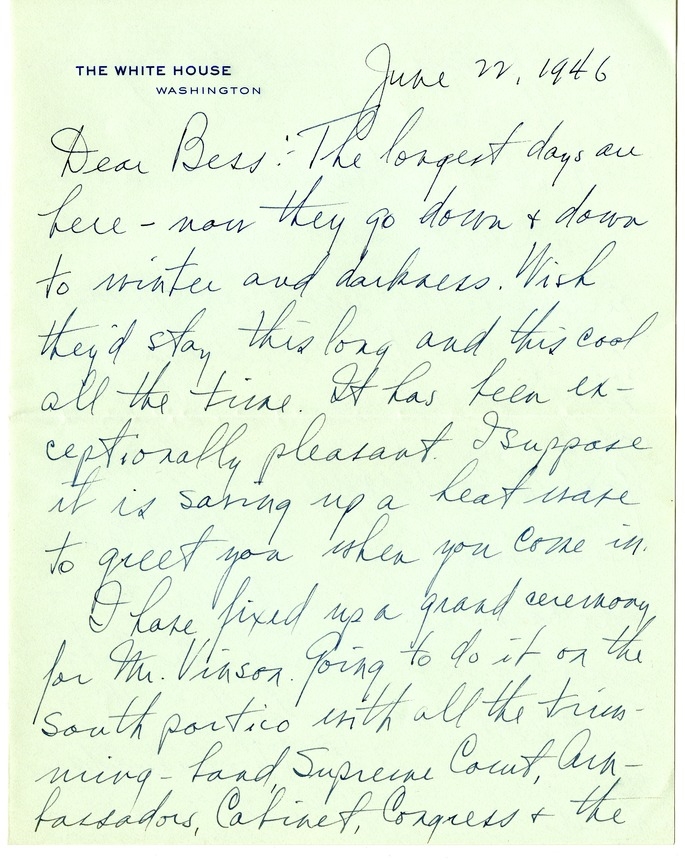 THE WHITE HOUSE
WASHINGTON
June 22, 1946
Dear Bess:- The longest days are
here - now they go down & down
to winter and darkness. Wish
they'd stay this long and this cool
all the time. It has been ex-
ceptionally pleasant. I suppose
it is saving up a heat wave
to greet you when you come in.
I have fixed up a grand ceremony
for Mr. Vinson. Going to do it on the
South portico with all the trim-
ming - band, Supreme Court, Am-
bassadors, Cabinet, Congress & the